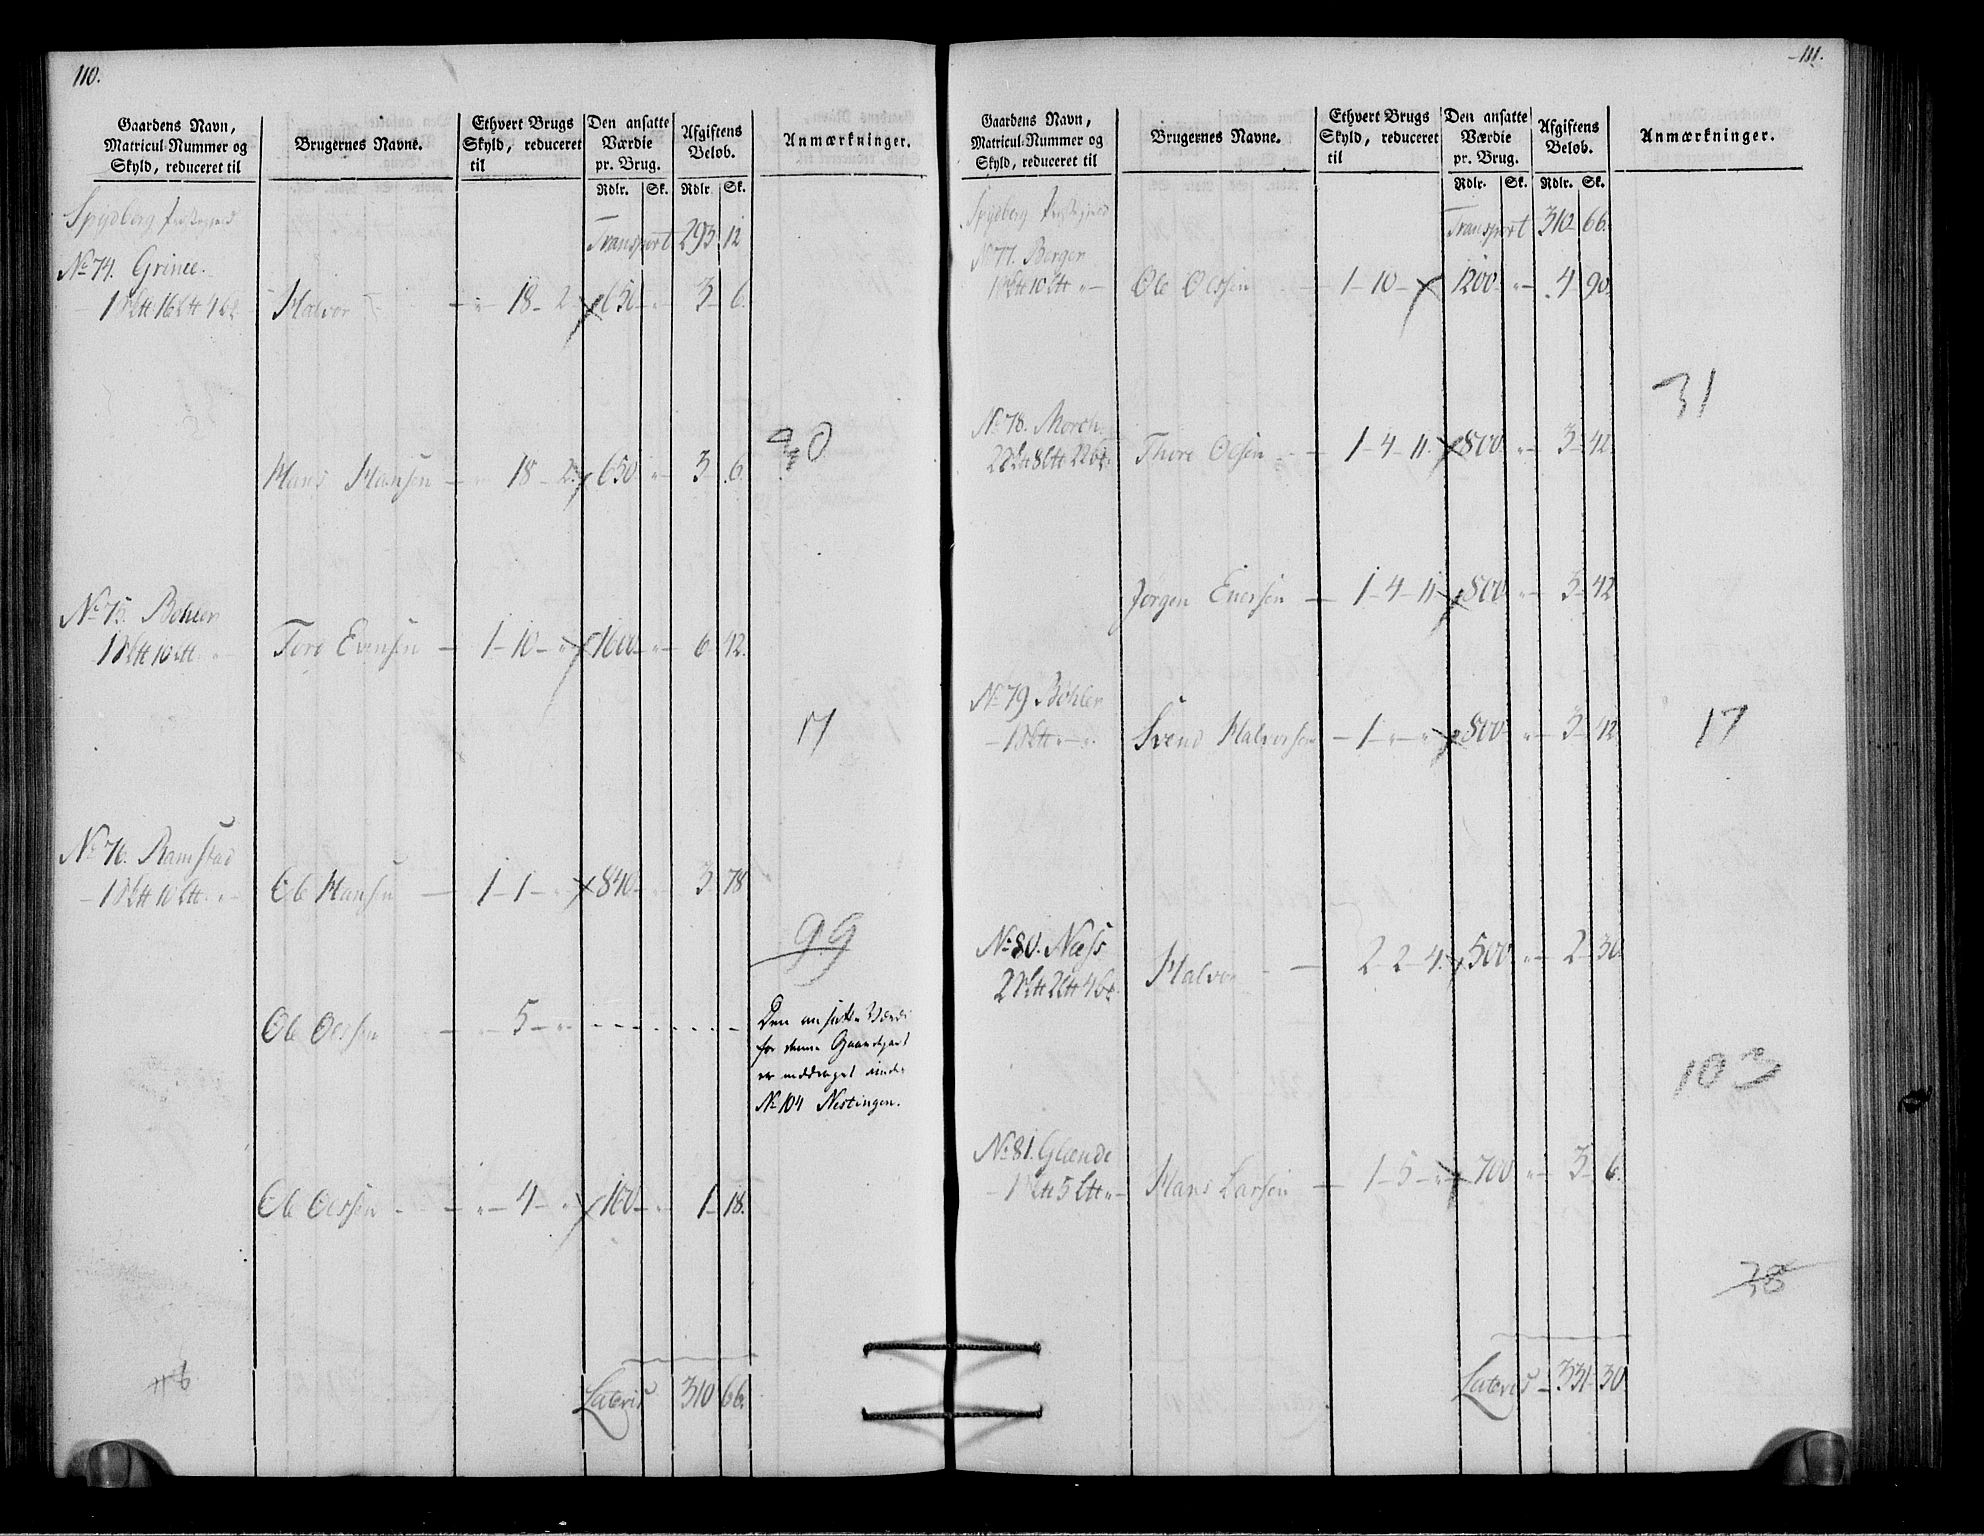 110.
Gaardens Navn,
Matricul-Nummer og
Skyld, reduceret til
Brugernes Navne.
Ethvert Brugs
Skyld, reduceret
til
Den ansatte
Værdie
pr. Brug.
Rdlr. Sk.
Afgiftens
Beløb.
Rdlr. Sk.
Anmærkninger.
Spydberg
Transport 293 12
No 74. Grinee.
Halvor 18 - 2 650 " 3 6.
Hans Hansen 18 - 2 650 " 3 6.
30
No 75. Bøhler
Tore Evensen 1 - 10 - " 1600 " 6 42.
17
No 76. Ramstad
Ole Hansen 1 - 1 - " 840 " 3 78
99
Ole Olssen " 5 - "
Den ansatte Værdi
for denne Gaardpart
er inddraget under
No 104 Nestingen.
Ole Olssen " 4 - " 160 " 1 18.
Lateris 310 66.
111.
Gaardens Navn,
Matricul-Nummer og
Skyld, reduceret til
Brugernes Navne.
Ethvert Brugs
Skyld, reduceret
til
Den ansatte
Værdie
pr. Brug.
Rdlr. Sk.
Afgiftens
Beløb.
Rdlr. Sk.
Anmærkninger.
Spydberg
Transport 310 66.
No 77. Berger
Ole Olssen 1 - 10 - 1200 " 4 90.
31
No 78. Morch
Thore Olsen 1 - 4 - 11 800 " 3 42.
Jørgen Enersen 1 - 4 - 11 800 " 3 42
No 79 Bøhler
Svend Halvorsen 1 - " - " 800 " 3 42
17
No 80. Næss
Halvor 2 - 2 - 4. 500 " 2 30.
No 81. Glænde
Hans Larsen 1 - 5 - " 700 " 3 6.
38
Lateris 331 30.